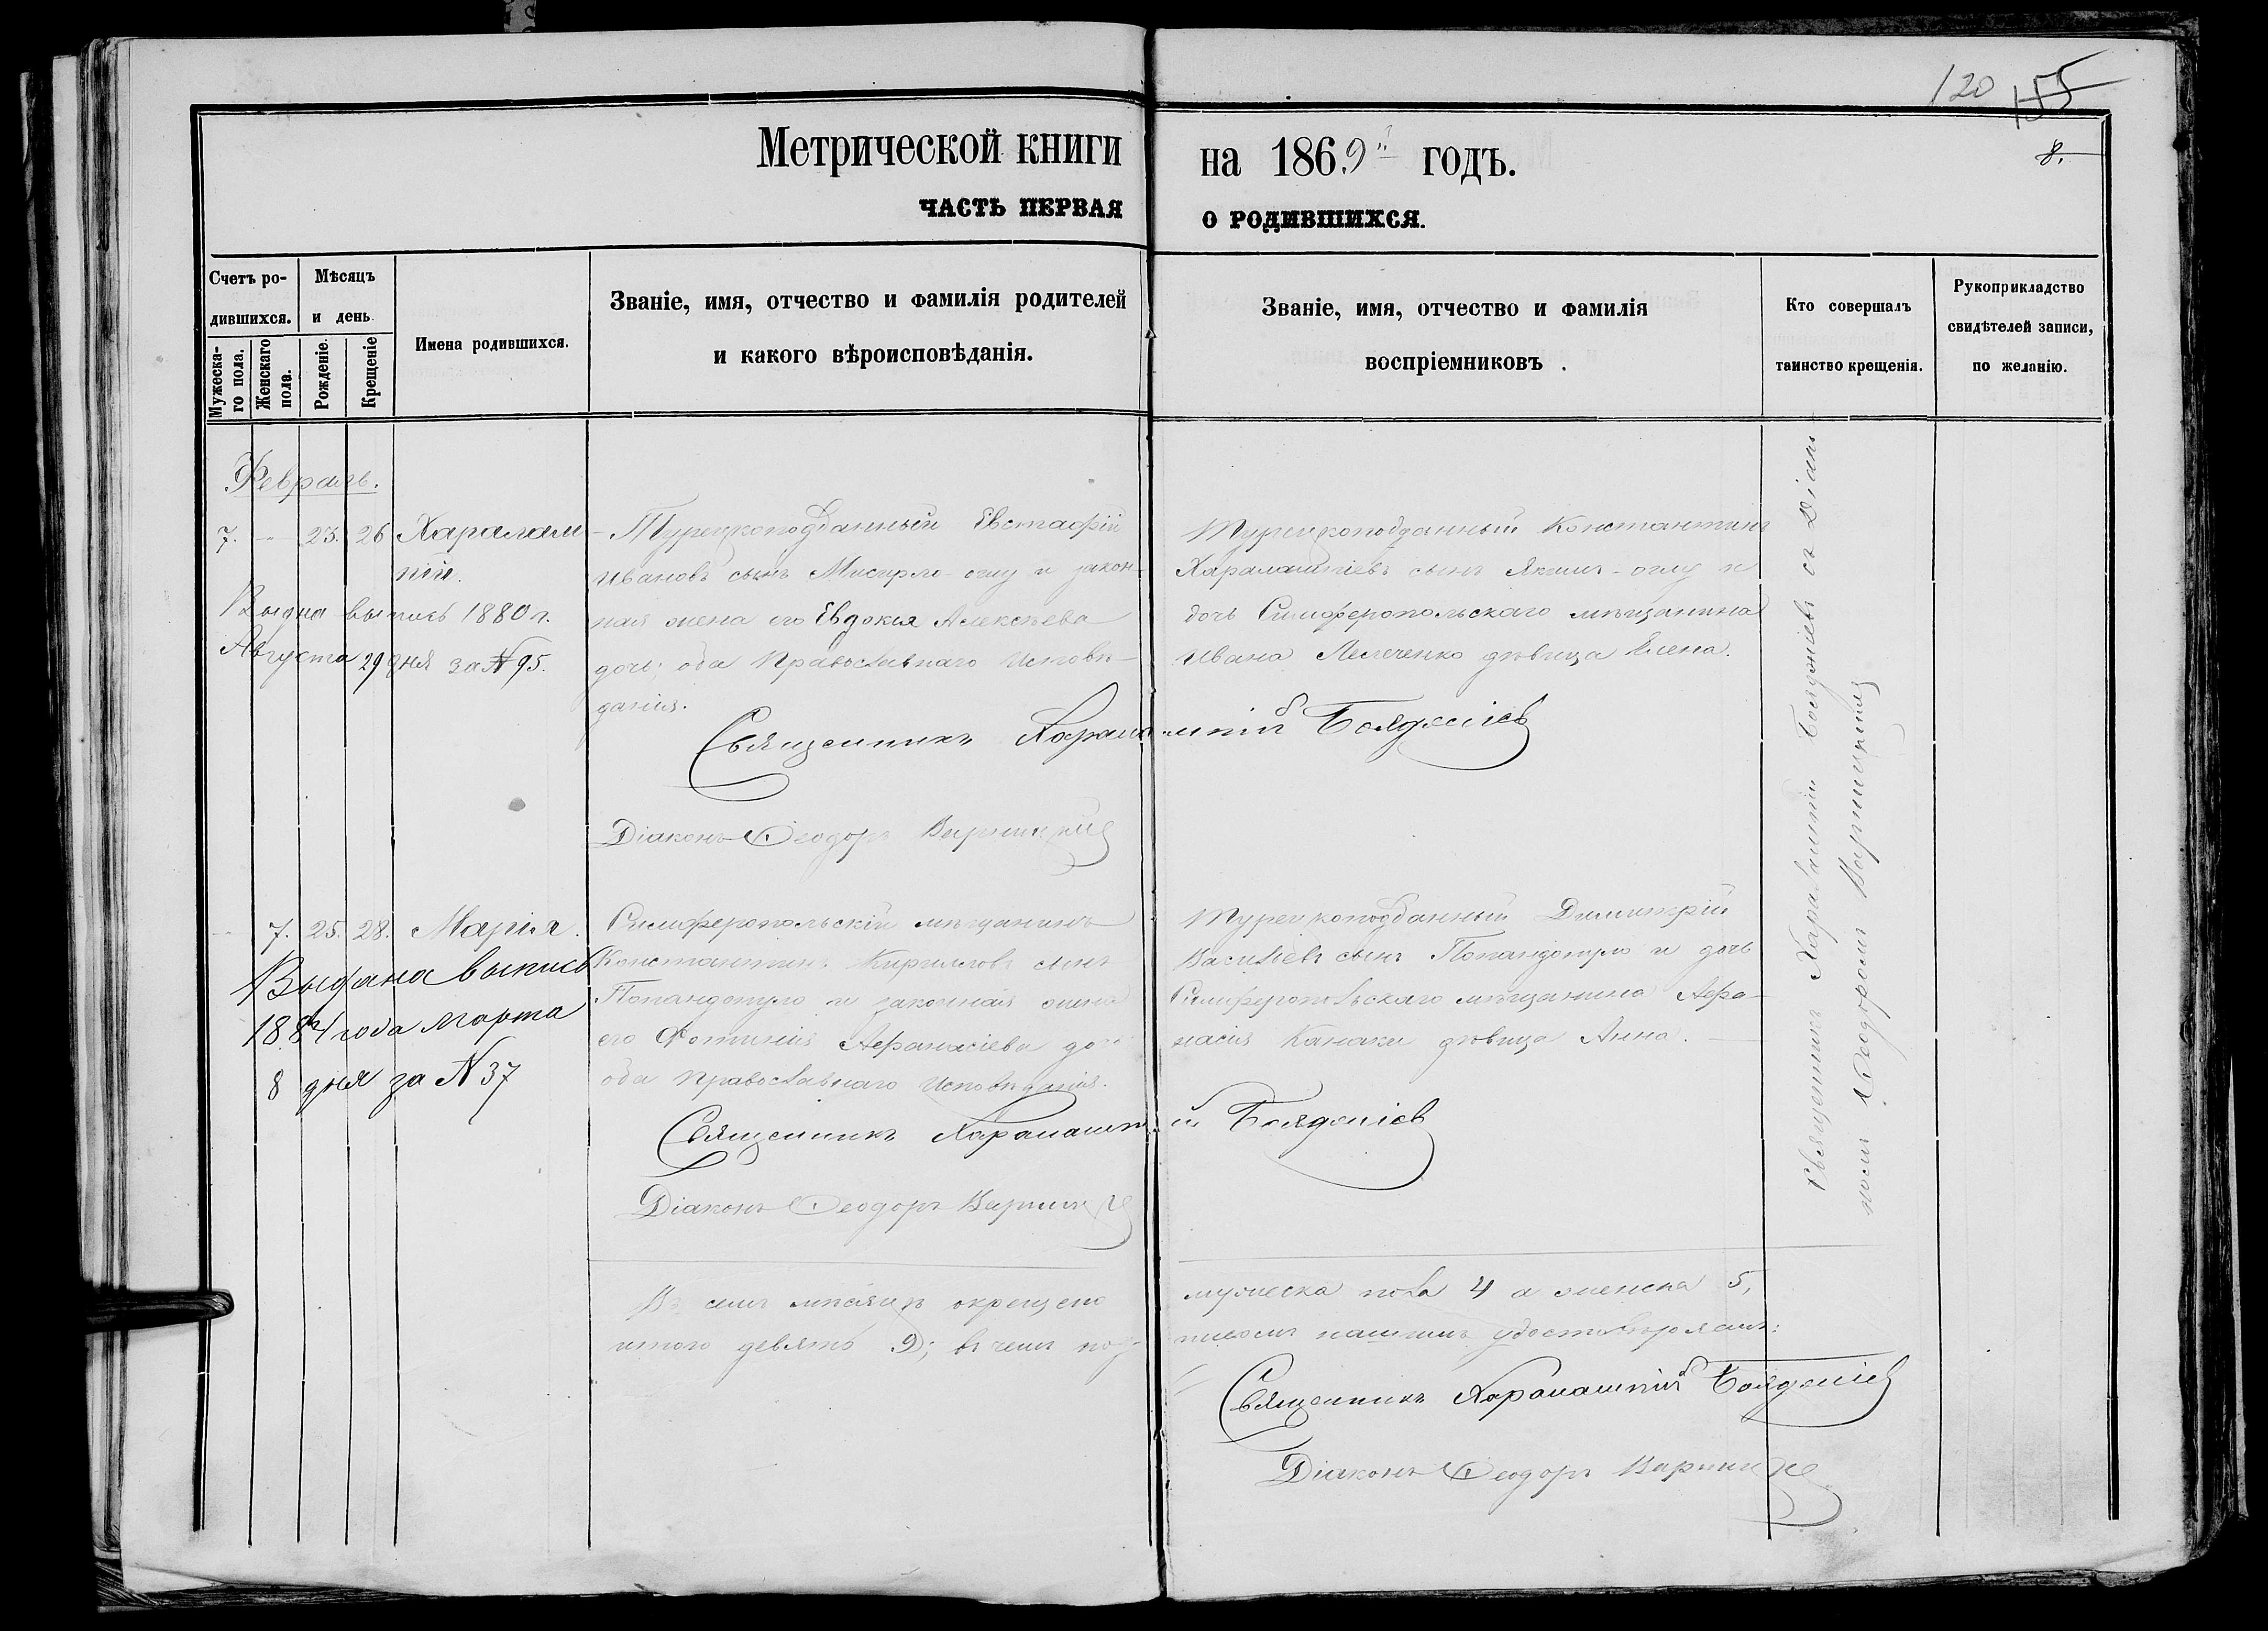 120 155
8.
Метрической книги на 1869й годъ.
ЧАСТЬ ПЕРВАЯ О РОДИВШИХСЯ.
Счетъ ро-
дившихся.
Мѣсяцъ
и день
Мужеска-
го пола.
Женскаго
пола.
Рожденіе.
Крещеніе
Имена родившихся.
Званіе, имя, отчество и фамилія родителей
и какого вѣроисповѣданія.
Званіе, имя, отчество и фамилія
воспріемниковъ.
Кто совершалъ
таинство крещенія.
Рукоприкладство
свидѣтелей записи,
по желанію.
Февраль.
7. - 23. 26 Харалам
пій.
Выдна выпись 1880 г.
Августа 29 дня за № 95.
Турецкоподданный Евстафій
Ивановъ сынъ оглу и закон-
ная жена его Евдокія Алексѣева
дочь; оба Православнаго Исповѣ-
данія.
Турецкоподданный Константинъ
Харалампіевъ сынъ оглу и
дочь Симферопольскаго мѣщанина
Ивана дѣвица Елена.
Священникъ Харалампій Бояджіев
Діаконъ Ѳеодоръ
Священникъ Харалампій Бояджіевъ съ Діако
номъ Ѳеодоромъ
- 7. 25. 28. Марія.
Выдана выпись
1884 года марта
8 дня за N 37
Симферопольскій мѣщанинъ
Константинъ Кирилловъ сынъ
Попандопуло и законная жена
его Фотинія Афанасіева до
оба Православнаго Исповѣданія.
Турецкоподданный Димитрій
Васильевъ сынъ Попандопуло и дочь
Симферопольскаго мѣщанина Афа-
насія Канаки дѣвица Анна.
Священникъ Харалампій Бояджіев
Діаконъ Ѳеодоръ
Въ семъ мѣсяцѣ окрещено мужеска пола 4 а женска 5,
итого девять 9; въ чемъ подписомъ нашимъ удостовѣряемъ:
Священникъ Харалампій Бояджіев
Діаконъ Ѳеодоръ